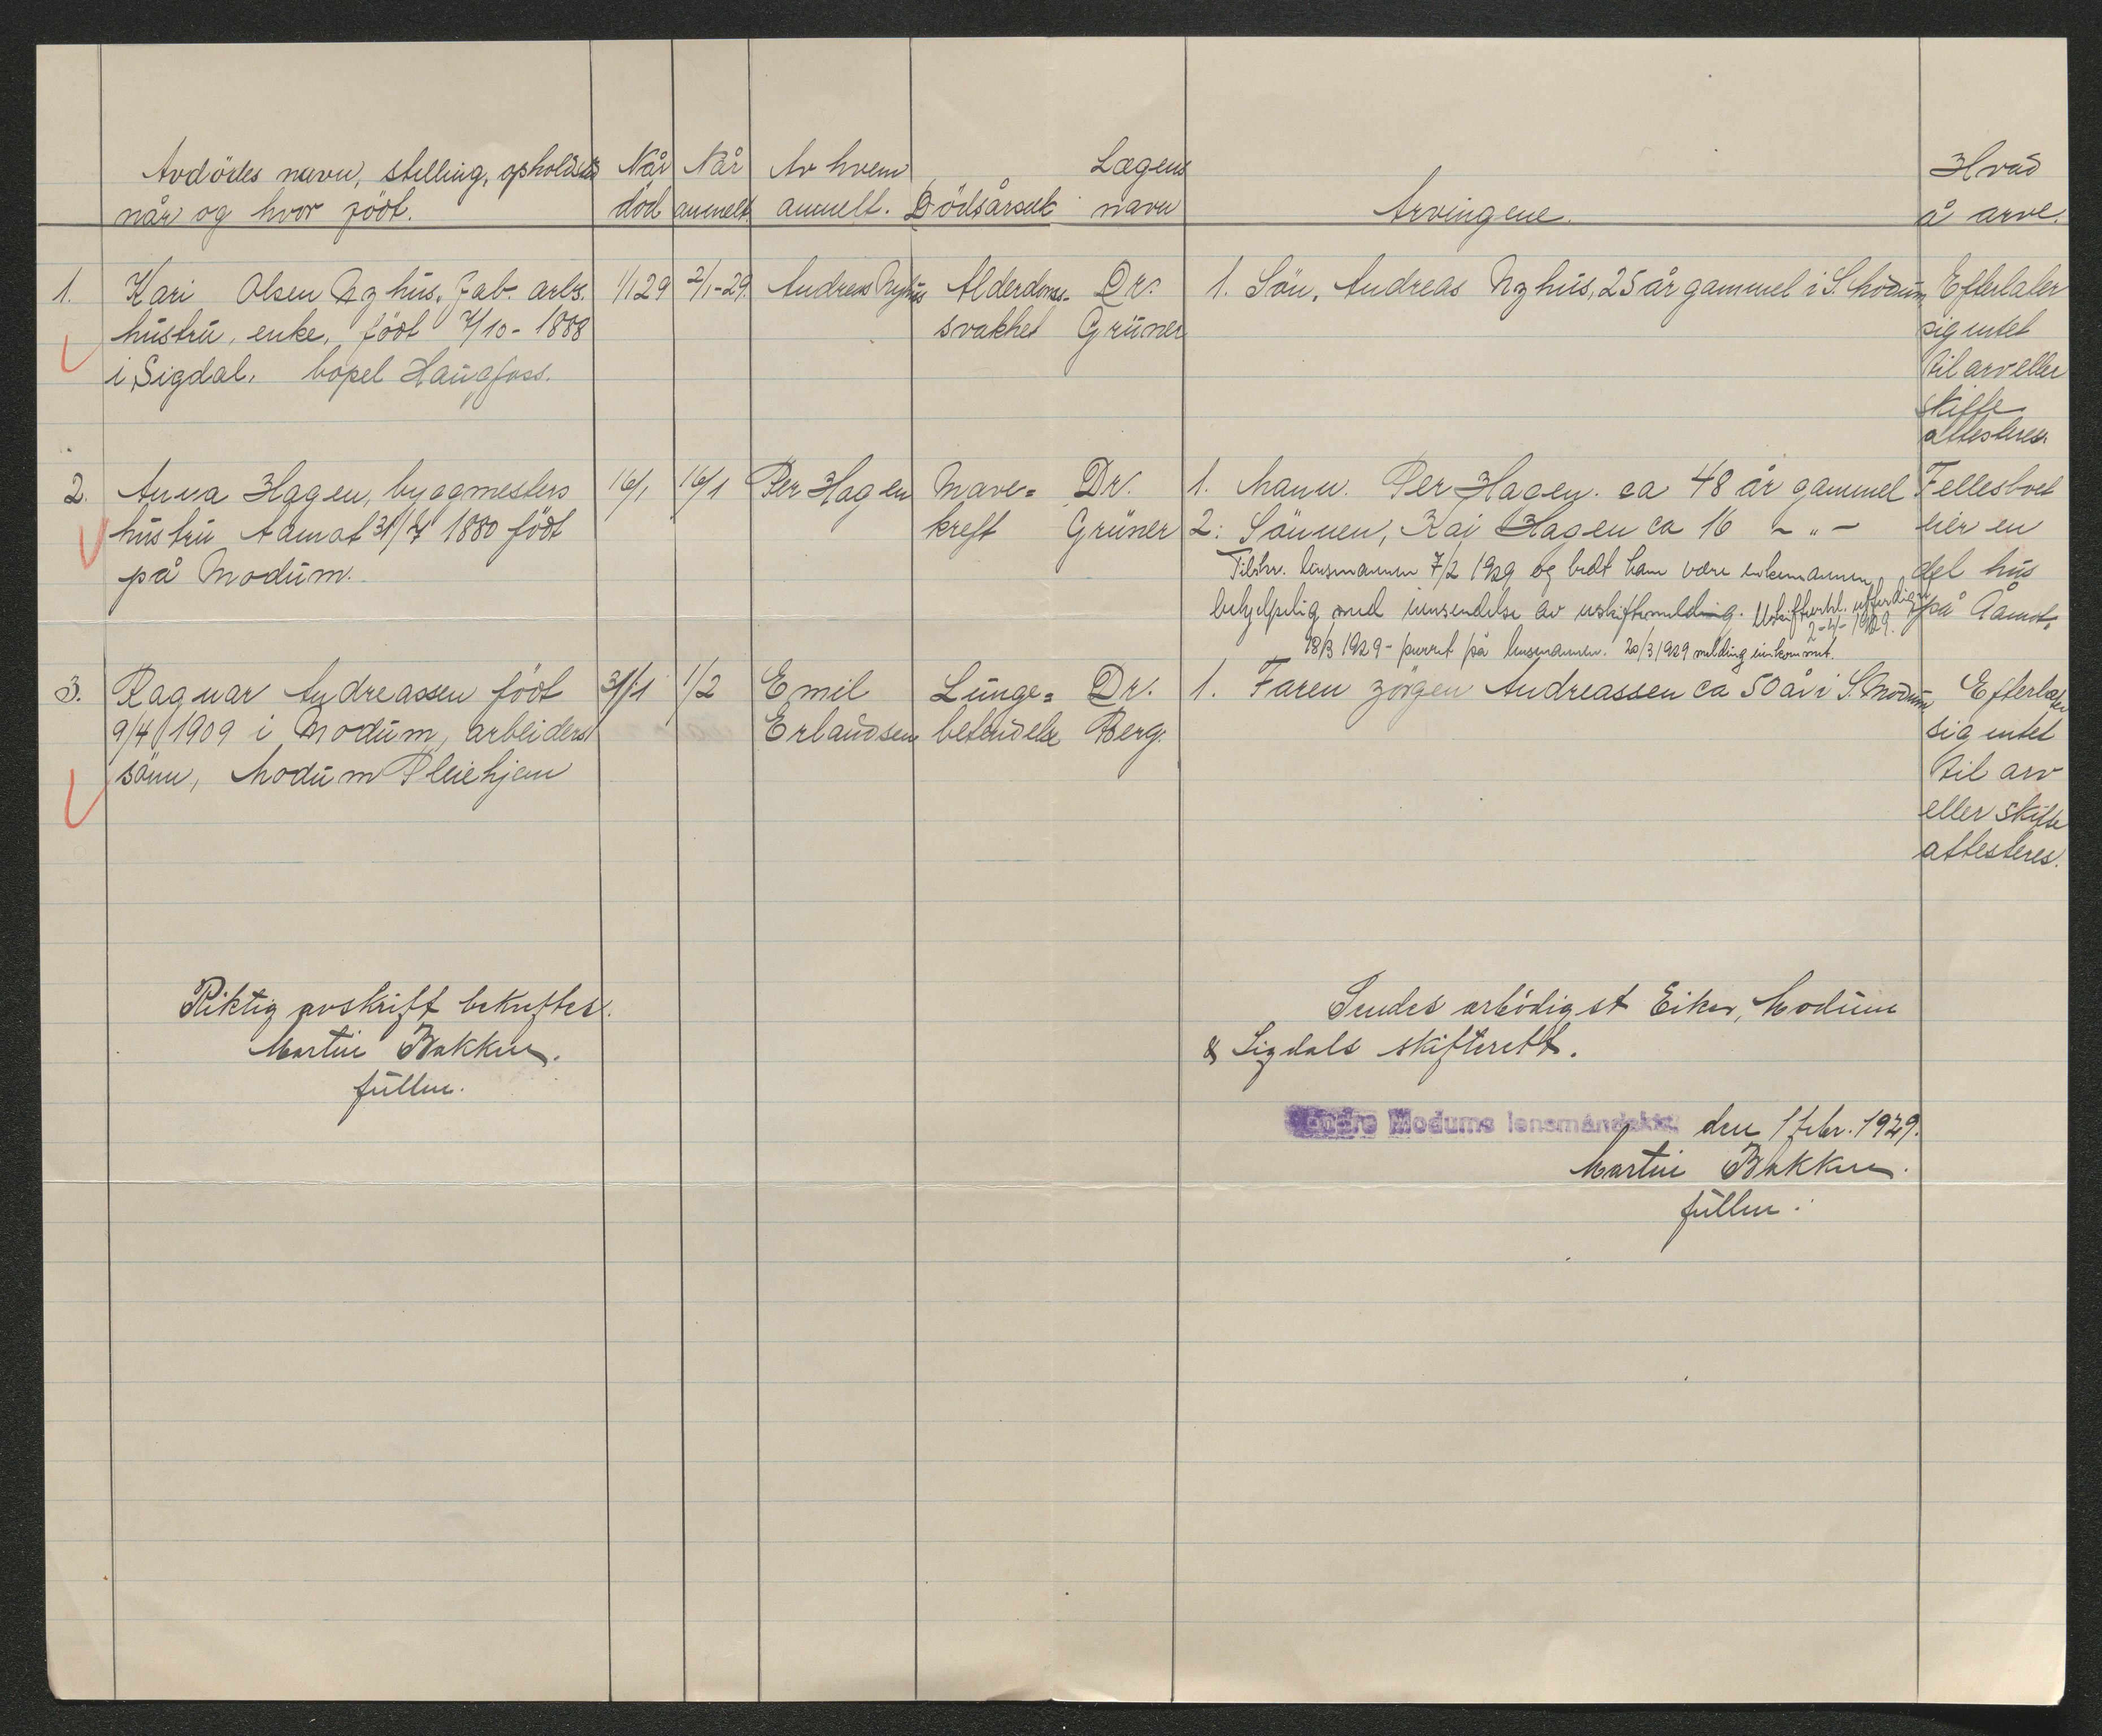 Avdödes navn, stilling, opholdssted
når og hvor födt.
Når
död
Når
anmelt
Av hvem
anmelt.
Dödsårsak
Lægens
navn
Arvingene.
Hvad
å arve.
1. Kari Olsen Nyhus. Fab. arbs.
hustru, enke, födt 7/10-1888
i Sigdal. bopel Haugfoss.
1/1 29
2/1-29.
Andreas Nyhus
Alderdoms-
svakhet
Dr.
Grüner
1. Sön, Andreas Nyhus, 25 år gammel i S. Modum
Efterlater
sig intet
til arv eller
skifte
attesteres.
2. Anna Hagen, byggmesters
hustru Åamot 31/7 1880 födt
på Modum.
16/1
16/1
Per Hagen
Mave=
kreft
Dr.
Grüner
1. Mann. Per Hagen. ca 48 år gammel
2: Sönnen, Kai Hagen ca 16 - " -
Tilskr. lensmannen 7/2 1929 og bedt ham være enkemannen
behjelpelig med innsendelse av uskiftemelding. Uskifteerkl. utferdiget
2-4-1929.
18/3 1929 - purret på lensmannen. 20/3 1929 melding innkommet.
Fellesboet
eier en
del hus
på Åamot.
3. Ragnar Andreassen födt
9/4 1909 i Modum, arbeiders
sönn, Modum Pleiehjem
31/1
1/2
Emil
Erlandsen
Lunge=
betendelse
Dr.
Berg.
1. Faren Jörgen Andreassen ca 50 år i S. Modum
Efterlater
sig intet
til arv
eller skifte
attesteres.
Riktig avskrift bekreftes.
Martin Bakken.
fullm.
Sendes ærbödigst Eiker, Modum
& Sigdals skifterett.
Söndre Modums lensmandskt. den 1 febr. 1929.
Martin Bakken.
fullm.